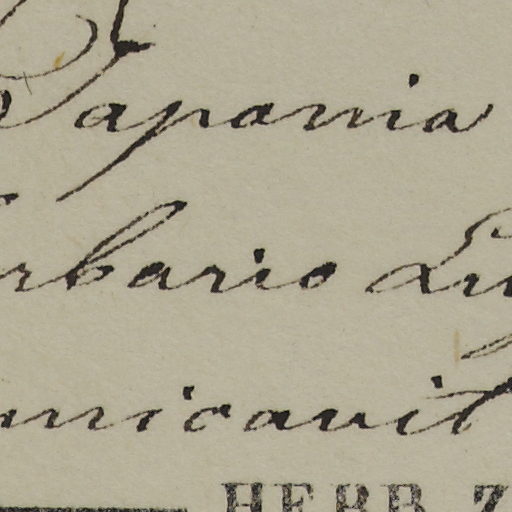 Japania
rbario Lu
nnicavit
HERB. Z